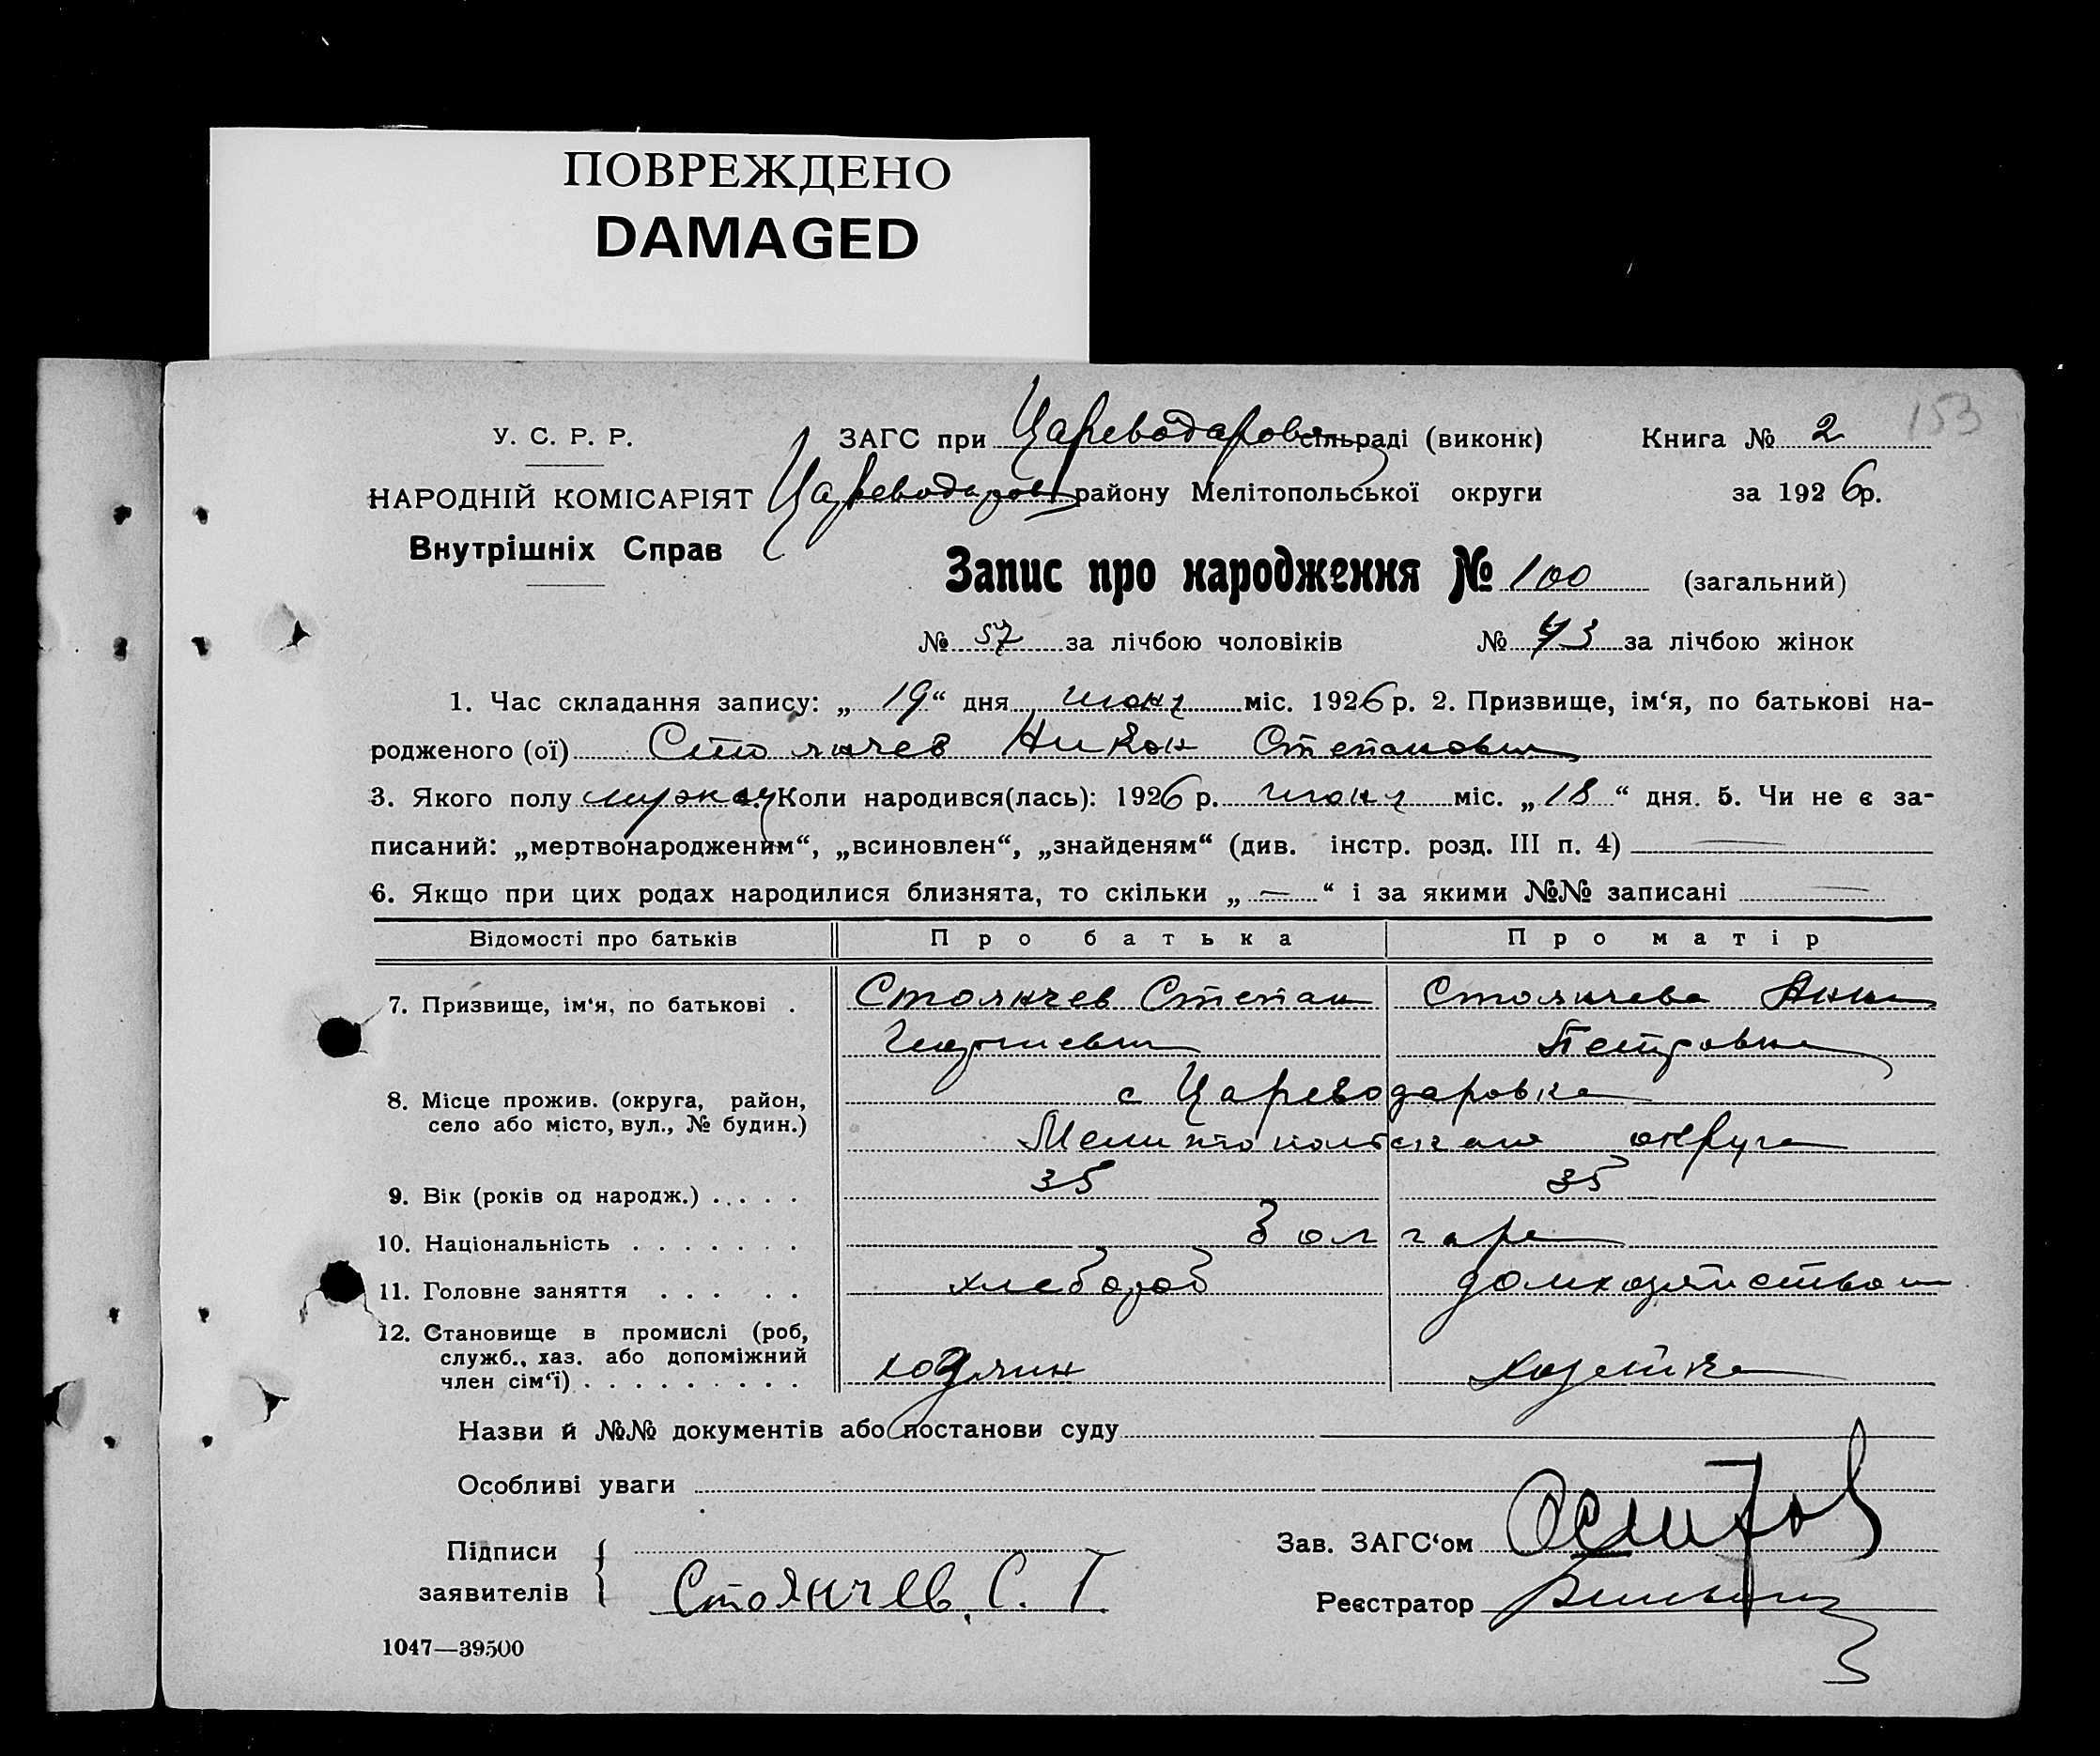 ПОВРЕЖДЕНО
DAMAGED
153
У. С. Р. Р.
ЗАГС при Цареводаров сільраді (виконк)
Книга № 2
НАРОДНІЙ КОМІСАРІЯТ
Цареводаров району Мелітопольської округи
за 1926 р.
Внутрішніх Справ
Запис про народження № 100 (загальний)
№ 57 за лічбою чоловіків № 43 за лічбою жінок
1. Час складання запису: „19“ дня июня міс. 1926 р. 2. Призвище, ім‘я, по батькові на-
родженого (ої) Стоянчев Никон Степанович
3. Якого полу мужск 4. Коли народився(лась): 1926 р. июня міс. „18“ дня. 5. Чи не є за-
писаний: „мертвонародженим“, „всиновлен“, „знайденям“ (див. інстр. розд. III п. 4) —
6. Якщо при цих родах народилися близнята, то скільки „—“ і за якими №№ записані —
Відомості про батьків Про батька Про матір
7. Призвище, ім‘я, по батькові . Стоянчев Степан Стоянчева Анна
Георгиевич Петровна
8. Місце прожив. (округа, район, с Цареводаровка
село або місто, вул., № будин.) Мелитопольская округа
9. Вік (років од народж.) . . . . . 35 35
10. Національність . . . . . . . болгаре
11. Головне заняття . . . . . хлебороб домхозяйством
12. Становище в промислі (роб,
служб., хаз. або допоміжний
член сім‘ї) . . . . . . . . . хозяин хозяйка
Назви й №№ документів або постанови суду
Особливі уваги
Підписи
заявителів
Стоянчев. С. Г.
Зав. ЗАГС‘ом
Реєстратор
1047—39500